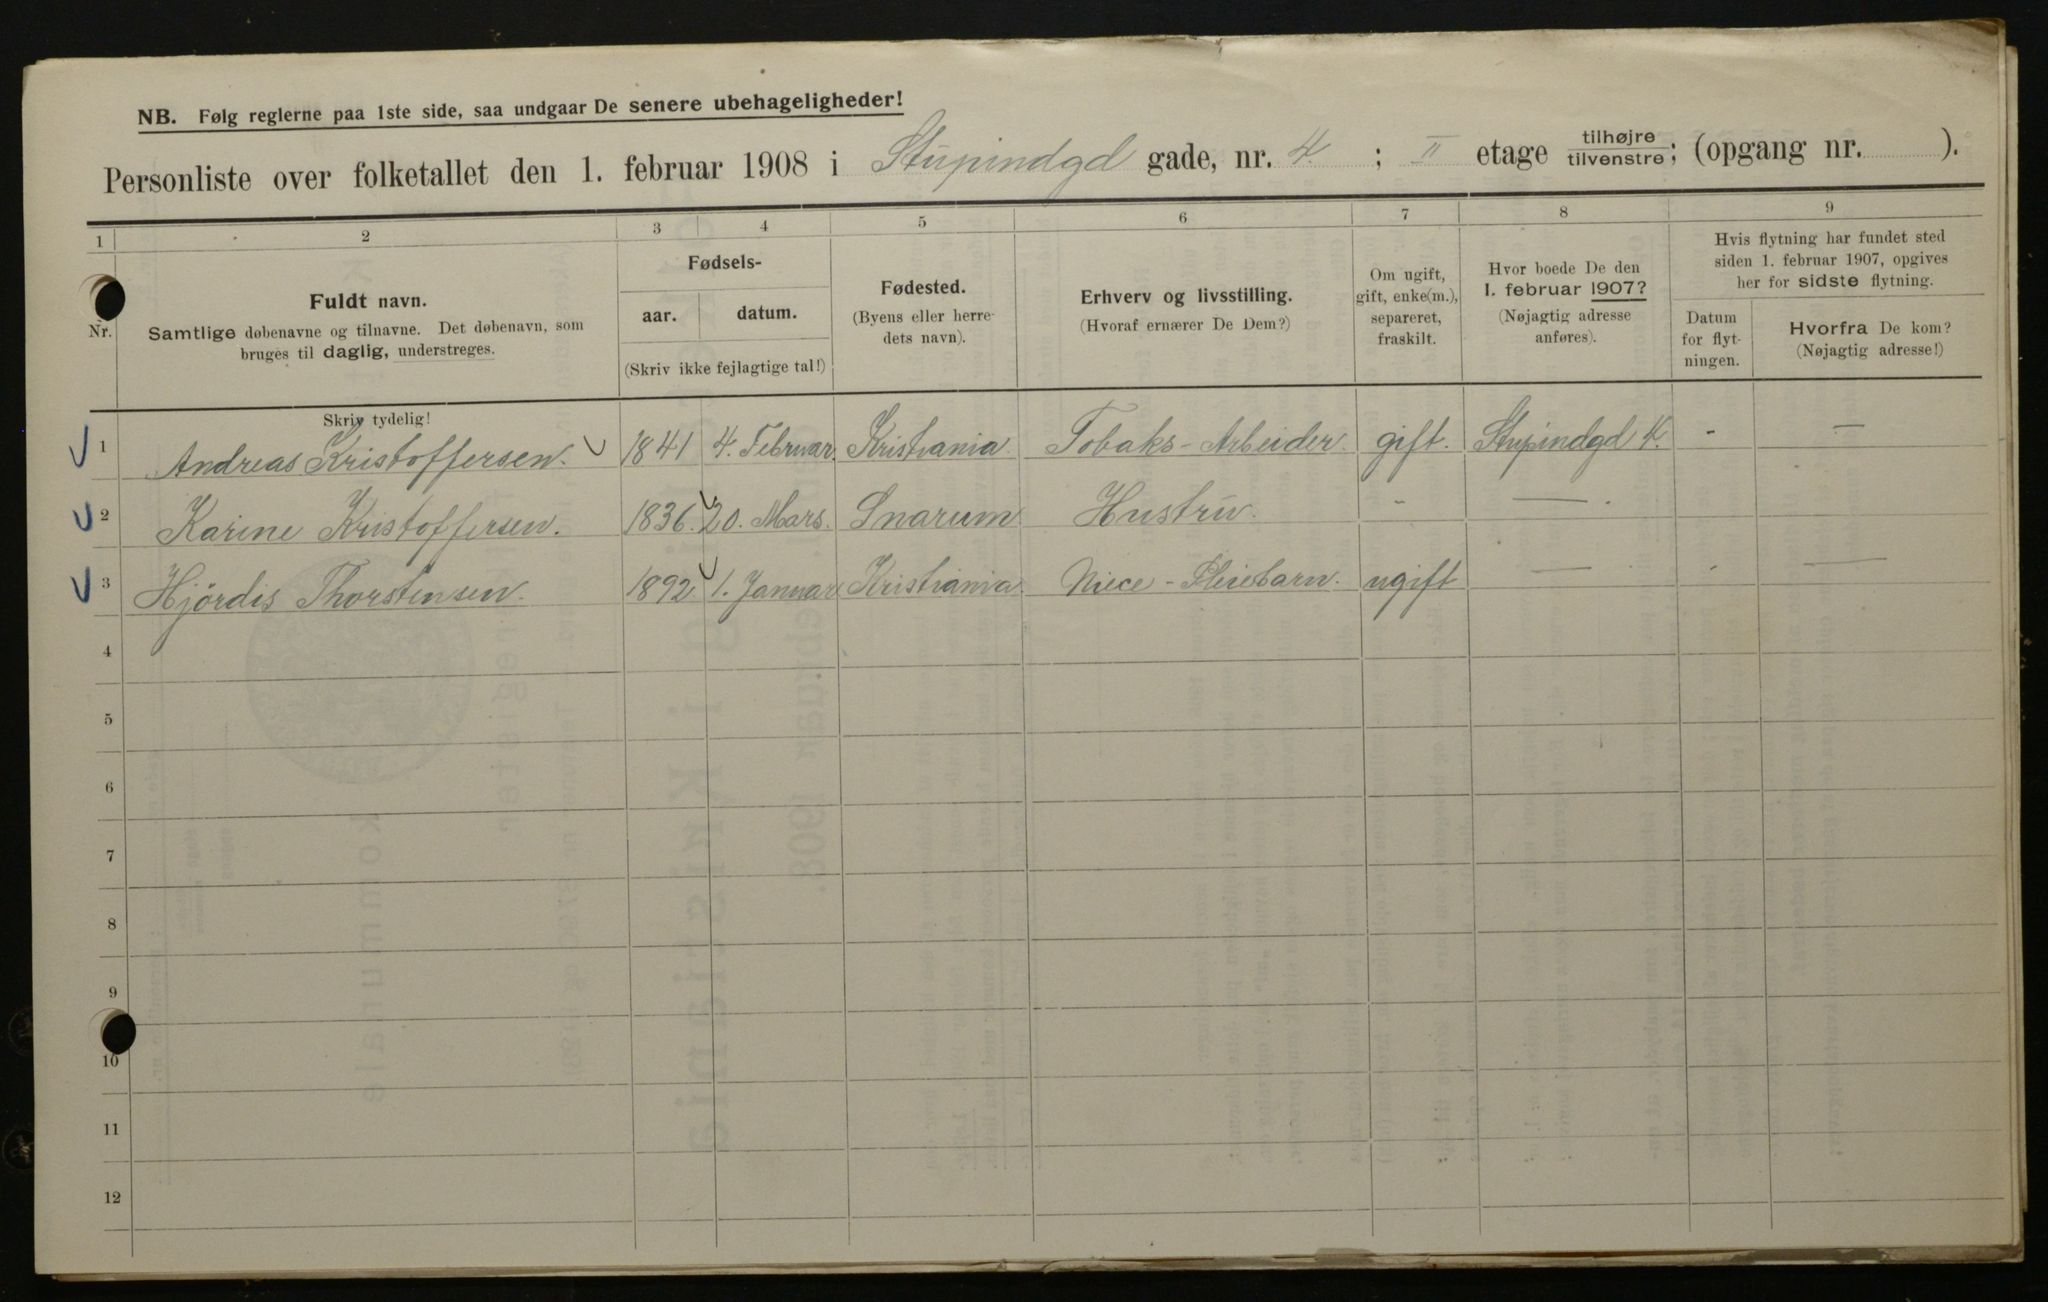 NB. Følg reglerne paa 1ste side, saa undgaar De senere ubehageligheder!
Personliste over folketallet den 1. februar 1908 i Stupindgd gade, nr. 4. ; II etage tilhøjre tilvenstre; (opgang nr. ).
1 2 3 4 5 6 7 8 9
Nr.
Fuldt navn.
Samtlige døbenavne og tilnavne. Det døbenavn, som
bruges til daglig, understreges.
Skriv tydelig!
Fødsels-
aar. datum.
(Skriv ikke fejlagtige tal!)
Fødested.
(Byens eller herre-
dets navn).
Erhverv og livsstilling.
(Hvoraf ernærer De Dem?)
Om ugift,
gift, enke(m.),
separeret,
fraskilt.
Hvor boede De den
1. februar 1907?
(Nøjagtig adresse
anføres).
Hvis flytning har fundet sted
siden 1. februar 1907, opgives
her for sidste flytning.
Datum
for flyt-
ningen.
Hvorfra De kom?
(Nøjagtig adresse!)
1 Andreas Kristoffersen. 1841 4. Februar. Kristiania Tobaks-Arbeider. gift. Stupindgd 4. - —
2 Karine Kristoffersen. 1836. 20. Mars. Snarum Hustru. - —
3 Hjördis Thorstensen. 1892 1. Januar Kristiania Niece - Pleiebarn. ugift — - —
4
5
6
7
8
9
10
11
12